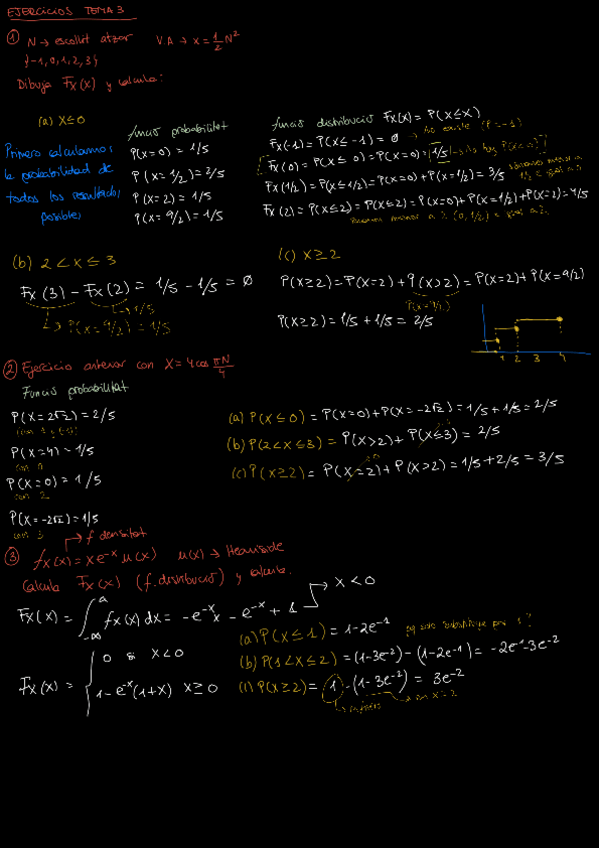 EJERCICIOS TEMA 3
① N → escollit atzar   VA → x = 1/2 N²
{-1, 0, 1, 2, 3}
Dibuja Fx(x) y calcula:
(a) X ≤ 0
Primero calculamos
la probabilidad de
todos los resultados
posibles
funció probabilitat
P(X=0) = 1/5
P(X=1/2) = 2/5
P(X=2) = 1/5
P(X=9/2) = 1/5
funció distribució Fx(x) = P(X≤x)
Fx(-1) = P(X≤-1) = 0 → No existe (P=-1)
Fx(0) = P(X≤0) = P(X=0) = 1/5
Fx(1/2) = P(X≤1/2) = P(X=0) + P(X=1/2) = 3/5
Fx(2) = P(X≤2) = P(X≤2) = P(X=0) + P(X=1/2) + P(X=2) = 4/5
(b) 2 < x ≤ 3
Fx(3) - Fx(2) = 1/5 - 1/5 = 0
→ 1/5
→ P(X=9/2) = 1/5
(c) X ≥ 2
P(X≥2) = P(X=2) + P(X>2) = P(X=2) + P(X=9/2)
P(X=9/2)
P(X≥2) = 1/5 + 1/5 = 2/5
1 2 3 4
② Ejercicio anterior con X = 4cos πN/4
Funció probabilitat
P(X=2√2) = 2/5
P(X=4) = 1/5
con 0
P(X=0) = 1/5
con 2
P(X=-2√2) = 1/5
con 3
(a) P(X≤0) = P(X=0) + P(X=-2√2) = 1/5 + 1/5 = 2/5
(b) P(2<X≤3) = P(X>2) + P(X≤3) = 2/5
(c) P(X≥2) = P(X=2) + P(X>2) = 1/5 + 2/5 = 3/5
→ f densitat
③ fx(x) = xe^-x u(x)   u(x) → Heaviside
Calcula Fx(x) (f. distribució) y calcula.
Fx(x) = ∫ -∞ a fx(x) dx = -e^-x x - e^-x + 1 → x < 0
Fx(x) = { 0 si x<0
1 - e^-x (1+x) x ≥ 0
(a) P(X≤1) = 1-2e^-1   ¿y esto substituye por 1?
(b) P(1<X≤2) = (1-3e^-2) - (1-2e^-1) = -2e^-1-3e^-2
(c) P(X≥2) = 1 - (1-3e^-2) = 3e^-2
→ en x=2